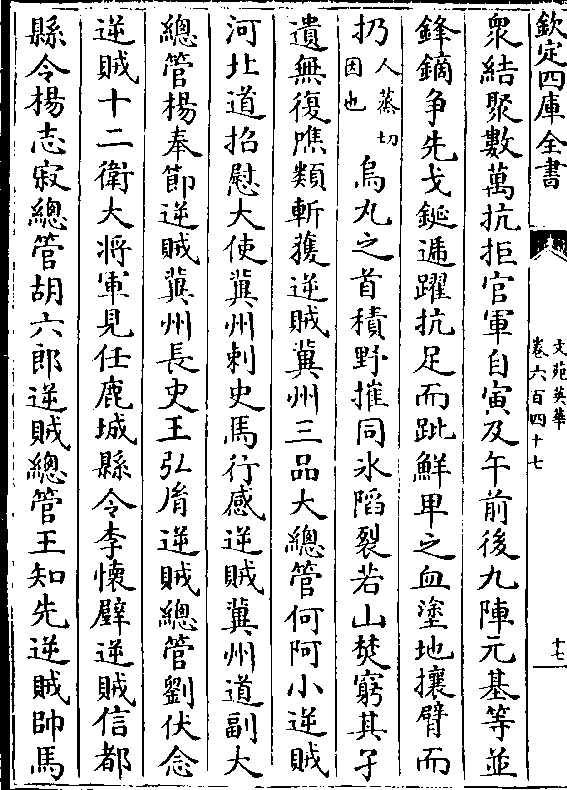 欽定四庫全書
文苑英華
卷六百四十七
十七
衆結聚數萬抗拒官軍自寅及午前後九陣元基等並
鋒鏑爭先戈鋋逓躍抗足而跐鮮卑之血塗地攘臂而
扔人蒸切因也烏丸之首積野摧同氷䧟裂若山焚窮其孑
遺無復噍類斬獲逆賊冀州三品大總管何阿小逆賊
河北道招慰大使冀州刺史馬行感逆賊冀州道副大
總管楊奉節逆賊冀州長史王弘㣧逆賊總管劉伏念
逆賊十二衛大將軍見任鹿城縣令李懷璧逆賊信都
縣令楊志寂總管胡六郎逆賊總管王知先逆賊帥馬